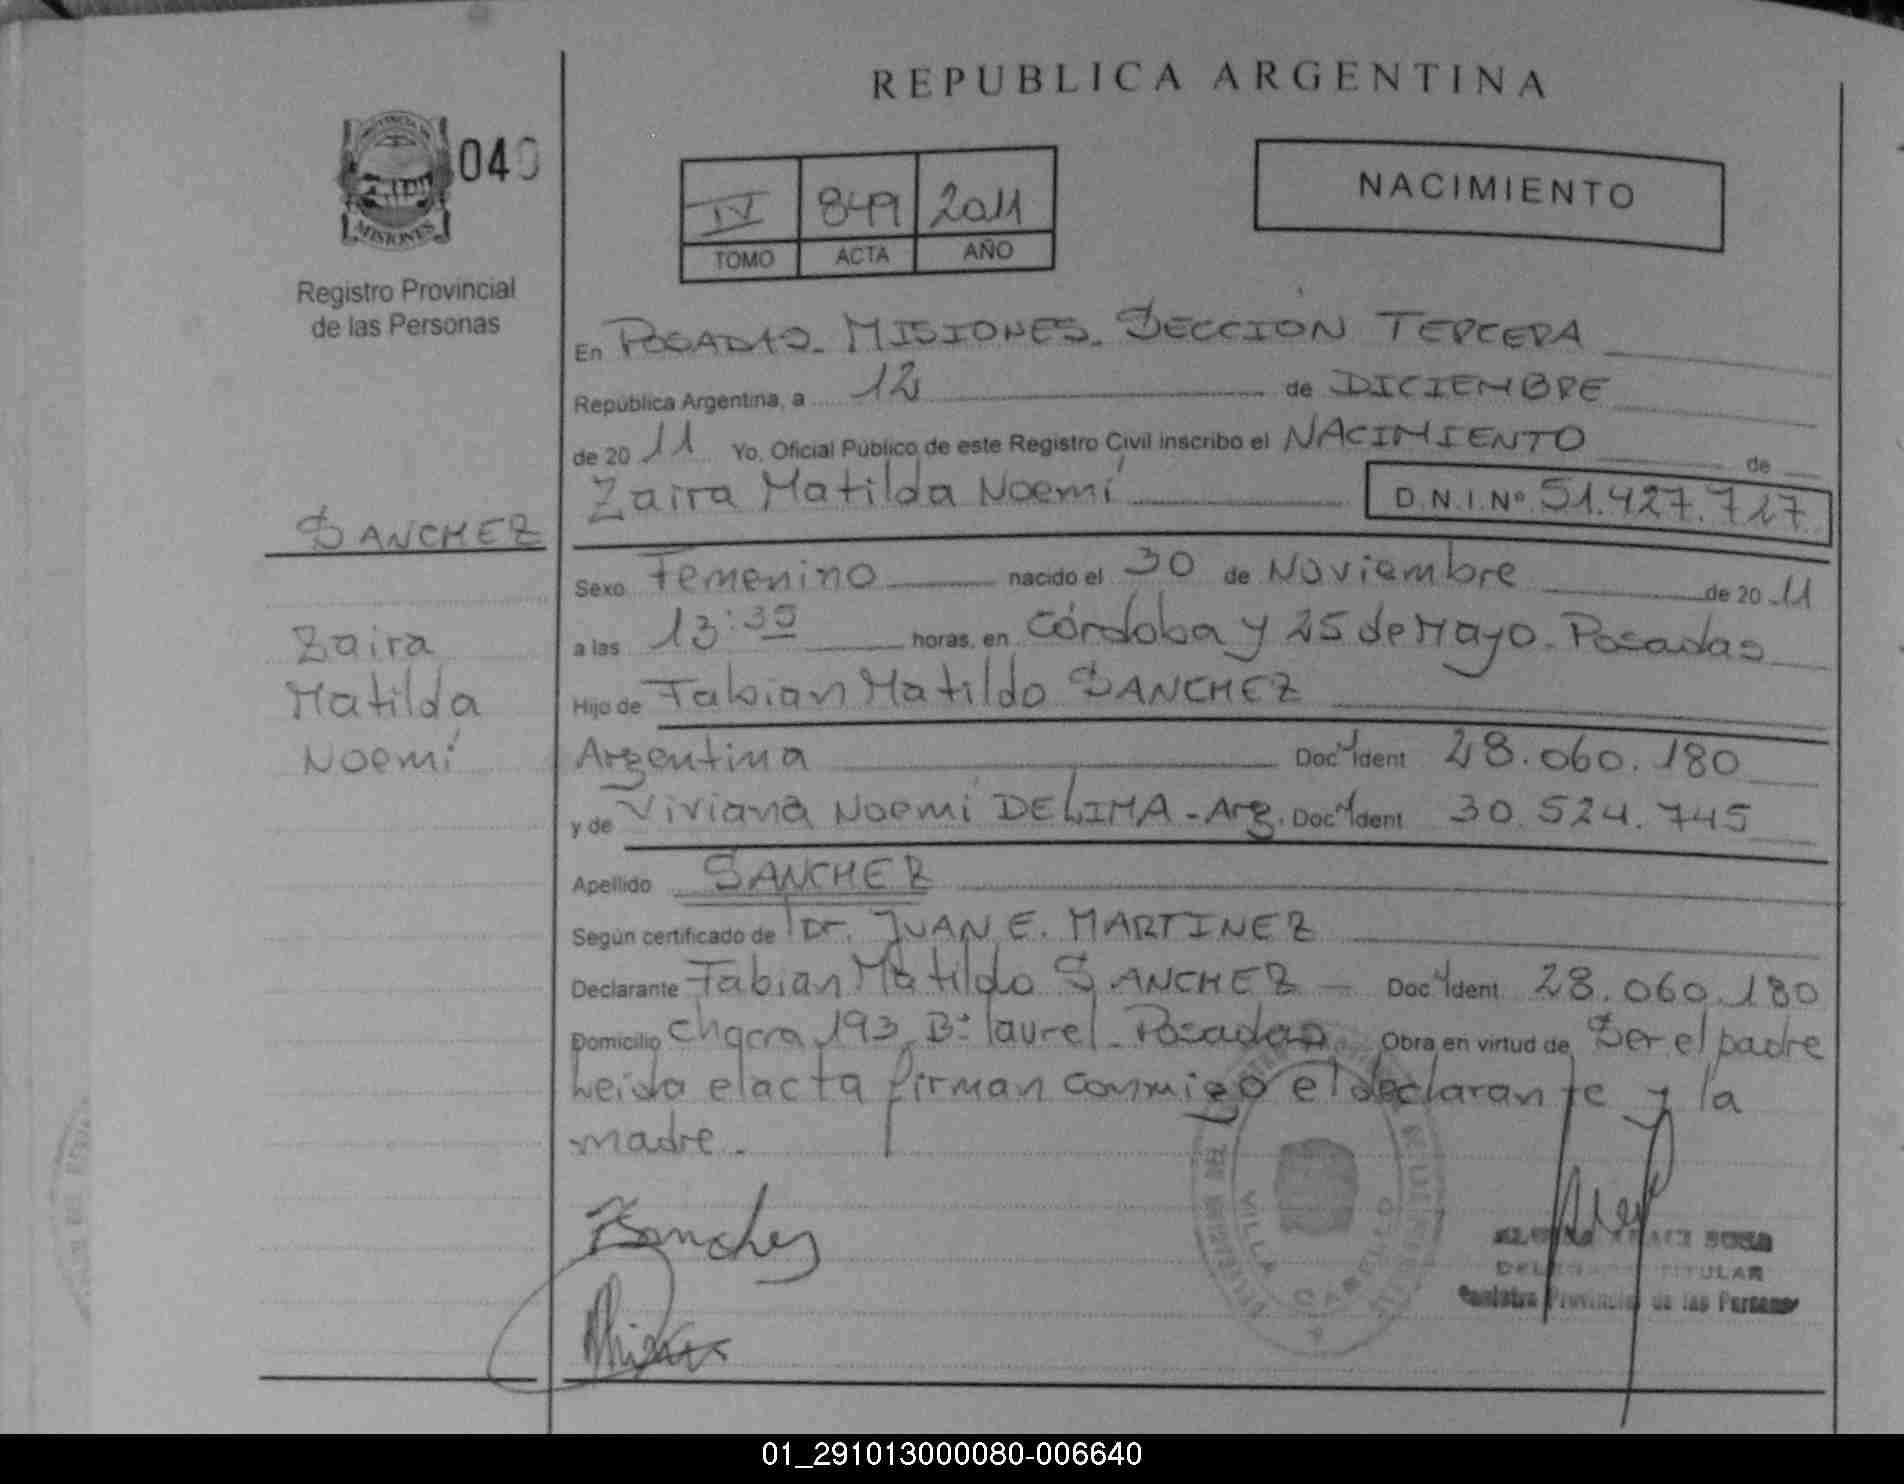 REPUBLICA ARGENTINA
PROVINCIA DE
MISIONES
040
Registro Provincial
de las Personas
IV 849 2011
TOMO ACTA AÑO
NACIMIENTO
En POSADAS - MISIONES - SECCION TERCERA
República Argentina, a 12 de DICIEMBRE
de 20 11 Yo, Oficial Público de este Registro Civil inscribo el NACIMIENTO de
Zaira Matilda Noemí D.N.I. Nº 51.427.727
SANCHEZ
Zaira
Matilda
Noemí
Sexo Femenino nacido el 30 de Noviembre de 20 11
a las 13:35 horas, en Córdoba y 25 de Mayo - Posadas
Hijo de Fabian Matildo SANCHEZ
Argentina Doc Ident 28.060.180
y de Viviana Noemí DE LIMA - Arg. Doc Ident 30.524.745
Apellido SANCHEZ
Según certificado de Dr. JUAN E. MARTINEZ
Declarante Fabian Matildo SANCHEZ - Doc Ident 28.060.180
Domicilio Chacra 193 Bº laurel - Posadas Obra en virtud de Ser el padre
Leida el acta firman conmigo el declarante y la
madre.
Sanchez
VILLA CABELLO
SOSA
TITULAR
Registro Provincial de las Personas
01_291013000080-006640